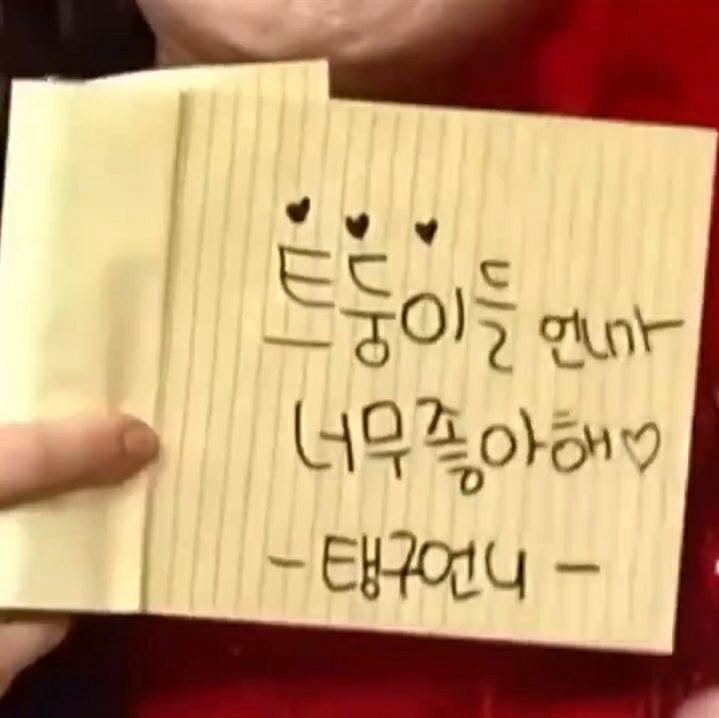 ♥ ♥ ♥
트둥이들 언니가
너무 좋아해♡
- 탱구언니 -